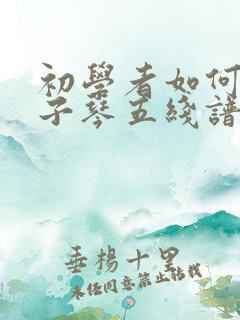 初学者如何
子琴五线谱
垂杨十里
未经同意禁止转载